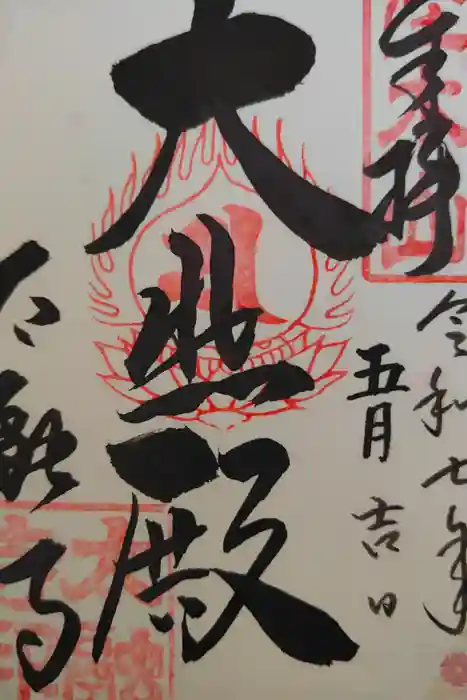 奉拝
令和七年
五月吉日
大悲殿
太融寺